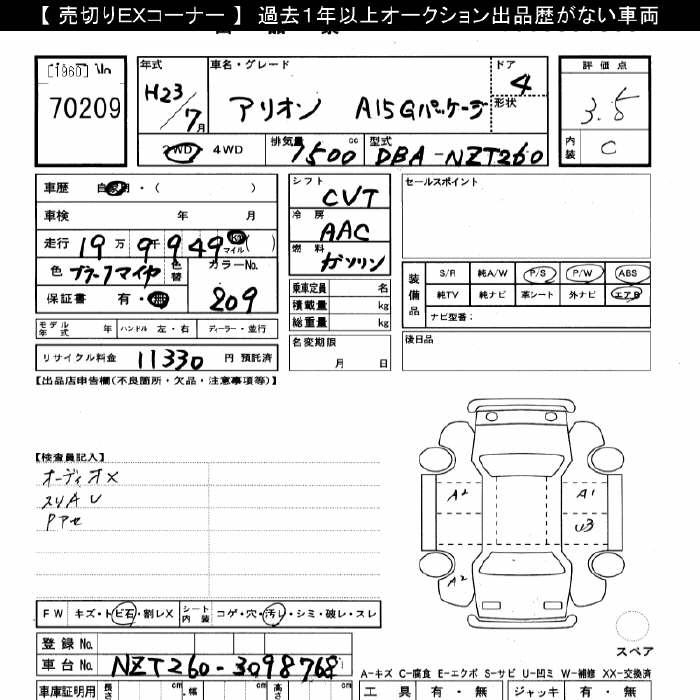 【 売切りEXコーナー 】 過去１年以上オークション出品歴がない車両
1960 No
70209
年式 H23/7月
車名・グレード アリオン A15Gパッケージ
ドア 4
形状
評価点 3.5
内装 C
2WD 4WD 排気量 1500 cc 型式 DBA-NZT260
車歴 自家用・( )
車検 年 月
走行 19万9千949 km マイル ( )
色 ブラックマイカ 色替 カラーNo. 209
保証書 有・無
シフト CVT
冷房 AAC
燃料 ガソリン
乗車定員 名
積載量 kg
総重量 kg
セールスポイント
装備品 S/R 純A/W P/S P/W ABS
純TV 純ナビ 革シート 外ナビ エアB
ナビ型番：
モデル年式 年 ハンドル 左・右 ディーラー・並行
名変期限 月 日
後日品
リサイクル料金 11330 円 預託済
【出品店申告欄(不良箇所・欠品・注意事項等)】
【検査員記入】
オーディオX
スリA U
A2 A1
U3
A2
FW キズ・トビ石・割レX シート内装 コゲ・穴・汚レ・シミ・破レ・スレ
登録 No.
車台 No. NZT260-3098768
スペア
A-キズ C-腐食 E-エクボ S-サビ U-凹ミ W-補修 XX-交換済
車庫証明用 長さ cm 幅 cm 高さ cm
工具 有・無 ジャッキ 有・無